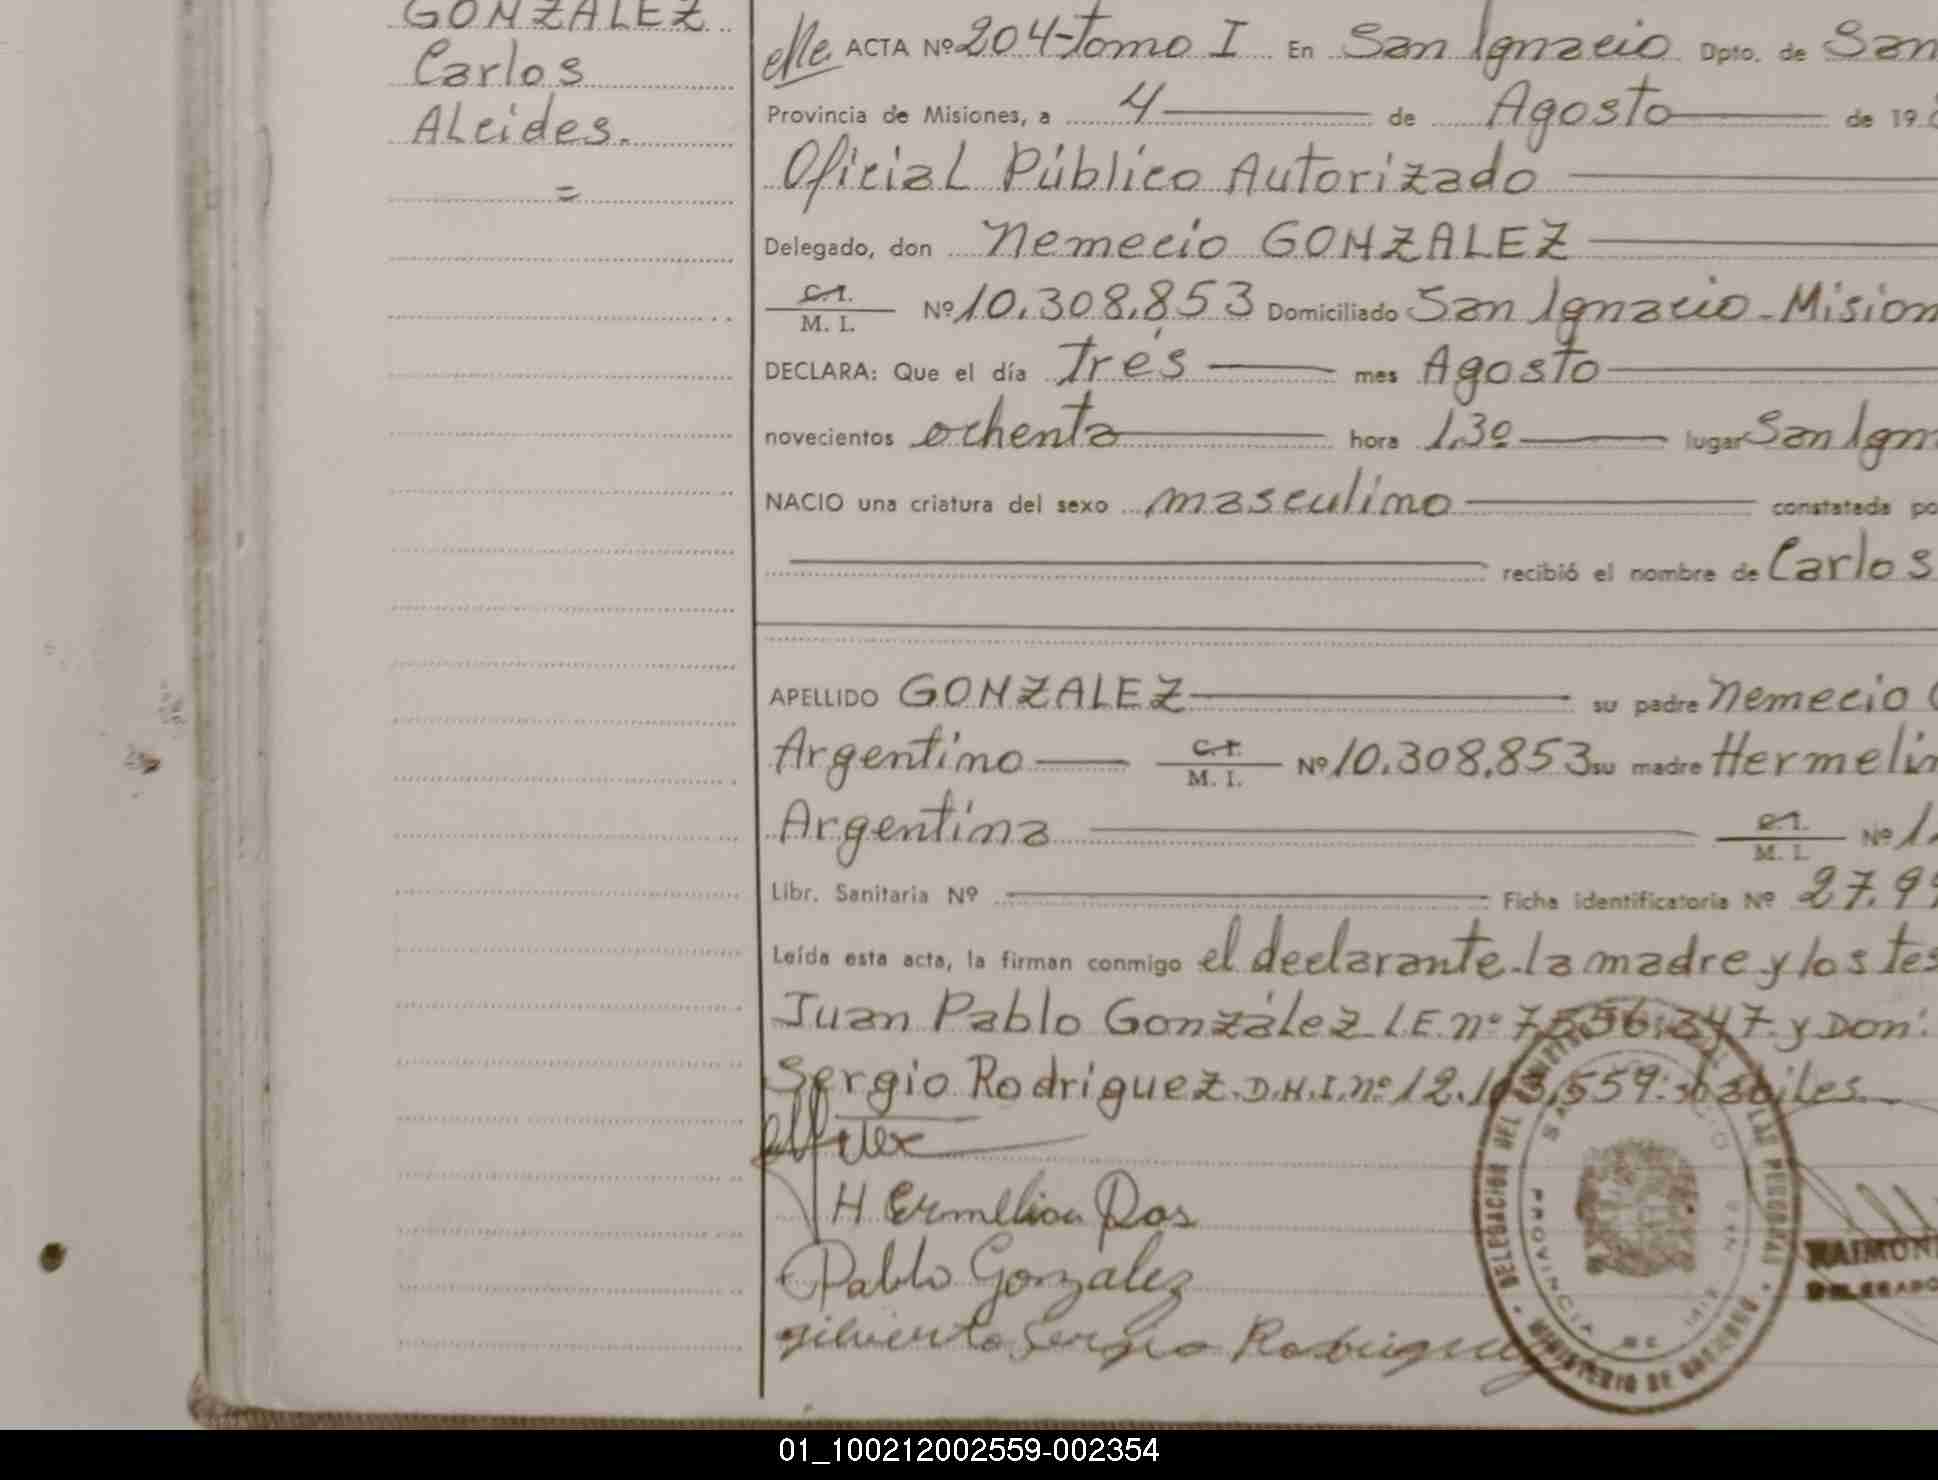 GONZALEZ
Carlos
ALcides.
=
ACTA Nº 204-Tomo I En San Ignacio Dpto. de San
Provincia de Misiones, a 4 de Agosto de 19
Oficial Público Autorizado
Delegado, don Nemecio GONZALEZ
C.I.
M. I. Nº 10.308.853 Domiciliado San Ignacio-Mision
DECLARA: Que el día Tres mes Agosto
novecientos ochenta hora 1.3º lugar San Ign
NACIO una criatura del sexo masculino constatada po
recibió el nombre de Carlos
APELLIDO GONZALEZ su padre Nemecio
Argentino C.I.
M. I. Nº 10.308.853 su madre Hermelin
Argentina C.I.
M. I. Nº 1.
Libr. Sanitaria Nº Ficha identificatoria Nº 27.9
Leída esta acta, la firman conmigo el declarante-la madre y los tes
Juan Pablo González L.E.nº 7.556.347 y Don:
Sergio Rodriguez.D.N.I.nº 12. 559: habiles
H Ermelinda Ros
Pablo Gonzalez
Sergio Rodriguez
DELEGACION DEL LAS PERSONAS
PROVINCIA DE
MINISTERIO DE GOBIERNO
RAIMON
DELEGADO
01_100212002559-002354